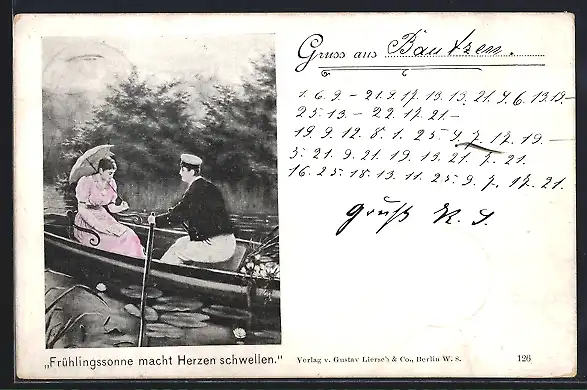 Gruss aus Bautzen.
1. 6. 9. - 21. 9. 17. 13. 13. 21. 4. 6. 13. 19 -
25. 13. - 22. 17. 21 -
19. 9. 12. 8. 1. 25. 4. 7. 17. 19. -
5. 21. 9. 21. 19. 13. 21. 7. 21.
16. 25. 18. 13. 11. 25. 9. 7. 17. 21.
Gruß K. S.
„Frühlingssonne macht Herzen schwellen."
Verlag v. Gustav Liersch & Co., Berlin W. 8.
126